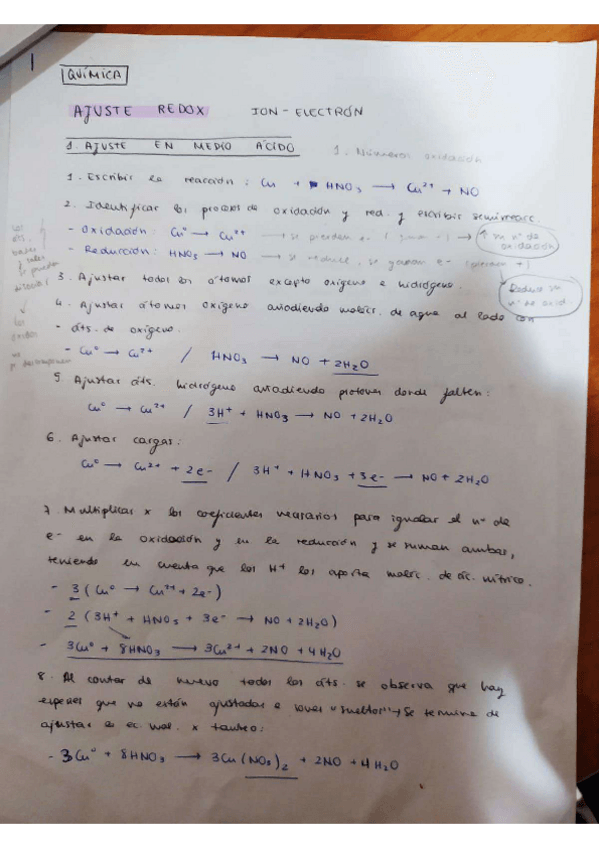 1
QUÍMICA
AJUSTE REDOX ION-ELECTRÓN
1. AJUSTE EN MEDIO ÁCIDO
1. Números oxidación
1. Escribir la reacción: Cu + HNO3 → Cu2+ + NO
2. Identificar los procesos de oxidación y red. y escribir semirreacc.
- Oxidación: Cu° → Cu2+ → se pierden e- (gana +) → ↑ su nº de oxidación
- Reducción: HNO3 → NO → se reduce, se ganan e-
Reduce su nº de oxid
3. Ajustar todos los átomos excepto oxígeno e hidrógeno.
4. Ajustar átomos oxígeno añadiendo moléc. de agua al lado con
- áts. de oxígeno.
- Cu° → Cu2+ / HNO3 → NO + 2H2O
5 Ajustar áts. hidrógeno añadiendo protones donde falten:
Cu° → Cu2+ / 3H+ + HNO3 → NO + 2H2O
6. Ajustar cargas:
Cu° → Cu2+ + 2e- / 3H+ + HNO3 + 3e- → NO + 2H2O
7. Multiplicar x los coeficientes necesarios para igualar el nº de
e- en la oxidación y en la reducción y se suman ambas,
teniendo en cuenta que los H+ los aporta moléc. de ác. nítrico.
- 3 (Cu° → Cu2+ + 2e-)
- 2 (3H+ + HNO3 + 3e- → NO + 2H2O)
- 3Cu° + 8HNO3 → 3Cu2+ + 2NO + 4H2O
8. Al contar de nuevo todos los áts. se observa que hay
especies que no están ajustadas o iones "sueltos" → Se termina de
ajustar la ec. mol. x tanteo:
- 3Cu° + 8HNO3 → 3Cu(NO3)2 + 2NO + 4H2O